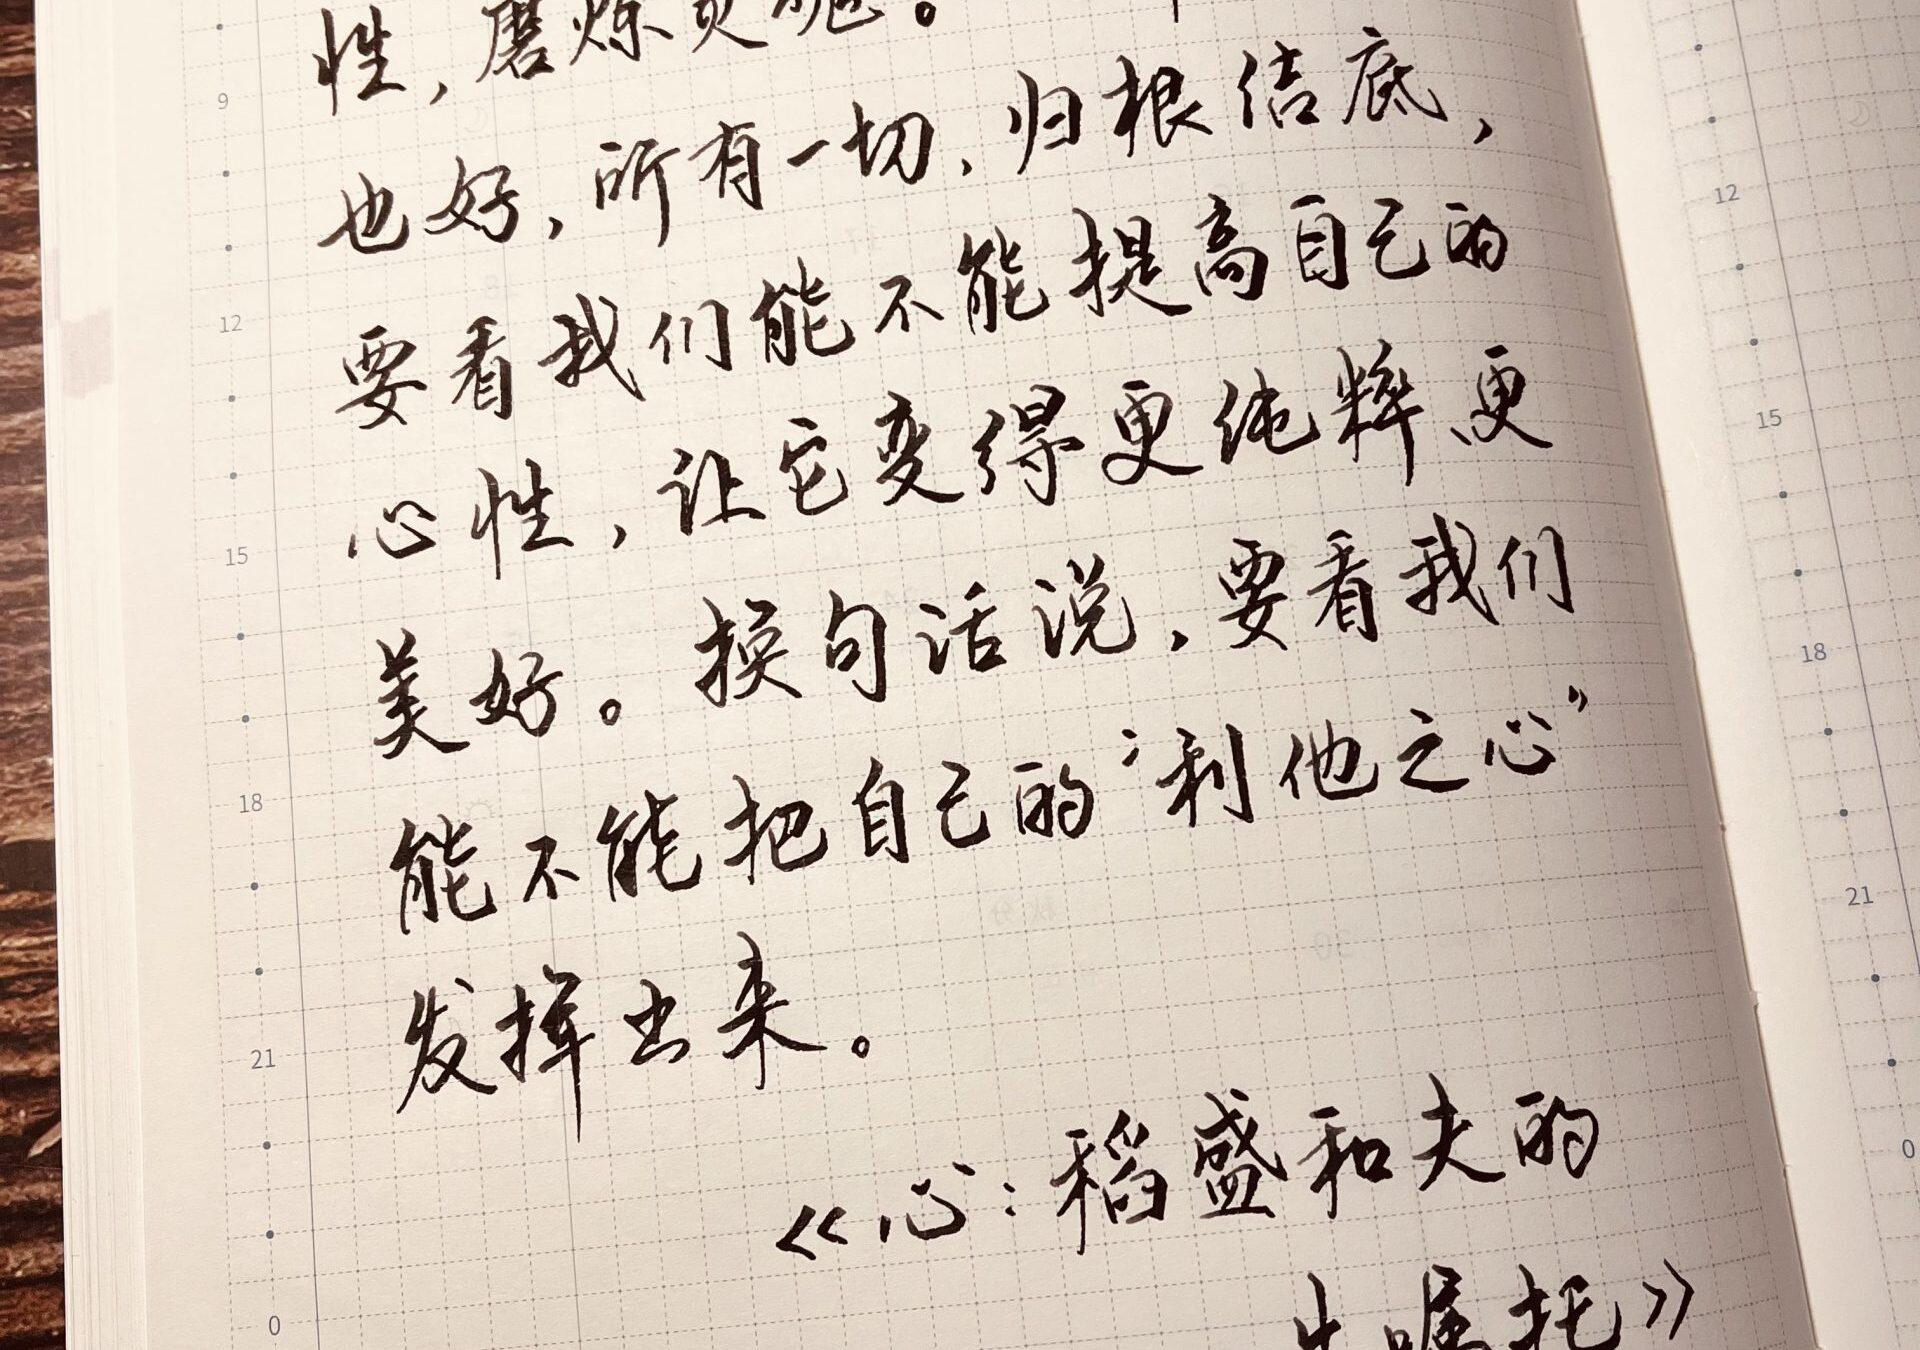 性，磨炼灵魂。
也好，所有一切，归根结底，
要看我们能不能提高自己的
心性，让它变得更纯粹更
美好。换句话说，要看我们
能不能把自己的“利他之心”
发挥出来。
《心：稻盛和夫的
生嘱托》
9
12
15
18
21
0
12
15
18
21
0